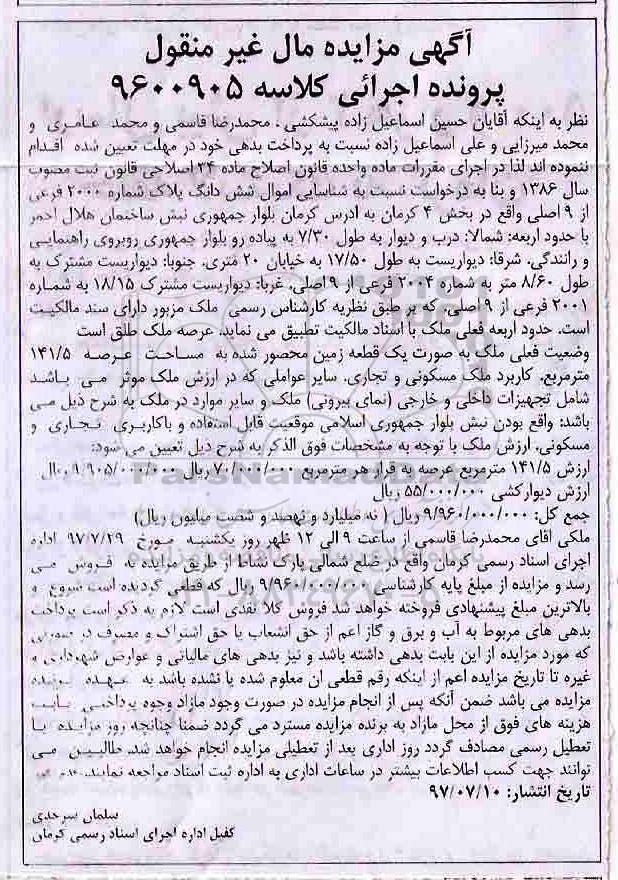 آگهی مزایده مال غیر منقول
پرونده اجرائی کلاسه ۹۶۰۰۹۰۵
نظر به اینکه آقایان حسین اسماعیل زاده پیشکشی ، محمدرضا قاسمی و محمد عامری و
محمد میرزایی و علی اسماعیل زاده نسبت به پرداخت بدهی خود در مهلت تعیین شده اقدام
ننموده اند لذا در اجرای مقررات ماده واحده قانون اصلاح ماده ۳۴ اصلاحی قانون ثبت مصوب
سال ۱۳۸۶ و بنا به درخواست نسبت به شناسایی اموال شش دانگ پلاک شماره ۲۰۰۰ فرعی
از ۹ اصلی واقع در بخش ۴ کرمان به ادرس کرمان بلوار جمهوری نبش ساختمان هلال احمر
با حدود اربعه: شمالا: درب و دیوار به طول ۷/۳۰ به پیاده رو بلوار جمهوری روبروی راهنمایی
و رانندگی. شرقا: دیواریست به طول ۱۷/۵۰ به خیابان ۲۰ متری. جنوبا: دیواریست مشترک به
طول ۸/۶۰ متر به شماره ۲۰۰۴ فرعی از ۹ اصلی. غربا: دیواریست مشترک ۱۸/۱۵ به شماره
۲۰۰۱ فرعی از ۹ اصلی، که بر طبق نظریه کارشناس رسمی ملک مزبور دارای سند مالکیت
است. حدود اربعه فعلی ملک با اسناد مالکیت تطبیق می نماید. عرصه ملک طلق است
وضعیت فعلی ملک به صورت یک قطعه زمین محصور شده به مساحت عرصه ۱۴۱/۵
مترمربع. کاربرد ملک مسکونی و تجاری. سایر عواملی که در ارزش ملک موثر می باشد
شامل تجهیزات داخلی و خارجی (نمای بیرونی) ملک و سایر موارد در ملک به شرح ذیل می
باشد: واقع بودن نبش بلوار جمهوری اسلامی موقعیت قابل استفاده و باکاربری تجاری و
مسکونی. ارزش ملک با توجه به مشخصات فوق الذکر به شرح ذیل تعیین می شود:
ارزش ۱۴۱/۵ مترمربع عرصه به قرار هر مترمربع ۷۰/۰۰۰/۰۰۰ ریال ۹/۹۰۵/۰۰۰/۰۰۰ ریال
ارزش دیوارکشی ۵۵/۰۰۰/۰۰۰ ریال
جمع کل: ۹/۹۶۰/۰۰۰/۰۰۰ ریال ( نه میلیارد و نهصد و شصت میلیون ریال)
ملکی اقای محمدرضا قاسمی از ساعت ۹ الی ۱۲ ظهر روز یکشنبه مورخ ۹۷/۷/۲۹ اداره
اجرای اسناد رسمی کرمان واقع در ضلع شمالی پارک نشاط از طریق مزایده به فروش می
رسد و مزایده از مبلغ پایه کارشناسی ۹/۹۶۰/۰۰۰/۰۰۰ ریال که قطعی گردیده است شروع و
بالاترین مبلغ پیشنهادی فروخته خواهد شد فروش کلا نقدی است لازم به ذکر است پرداخت
بدهی های مربوط به آب و برق و گاز اعم از حق انشعاب یا حق اشتراک و مصرف در صورتی
که مورد مزایده از این بابت بدهی داشته باشد و نیز بدهی های مالیاتی و عوارض شهرداری و
غیره تا تاریخ مزایده اعم از اینکه رقم قطعی ان معلوم شده یا نشده باشد به عهده برنده
مزایده می باشد ضمن آنکه پس از انجام مزایده در صورت وجود مازاد وجوه پرداختی بابت
هزینه های فوق از محل مازاد به برنده مزایده مسترد می گردد ضمنا چنانچه روز مزایده با
تعطیل رسمی مصادف گردد روز اداری بعد از تعطیلی مزایده انجام خواهد شد. طالبین می
توانند جهت کسب اطلاعات بیشتر در ساعات اداری به اداره ثبت اسناد مراجعه نمایند.
تاریخ انتشار: ۹۷/۰۷/۱۰
سلمان سرحدی
کفیل اداره اجرای اسناد رسمی کرمان
ParsNamadData